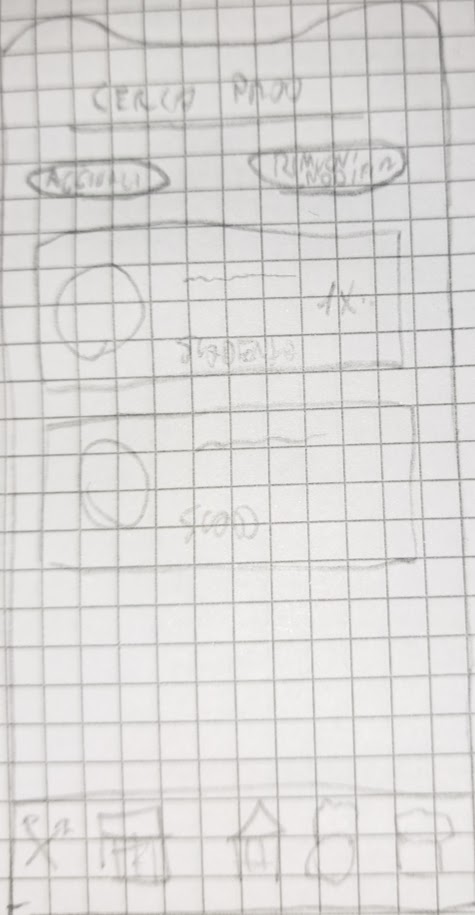 CERCA PROD
AGGIUNGI
RIMUOVI
1X
SCADENZA
SCAD